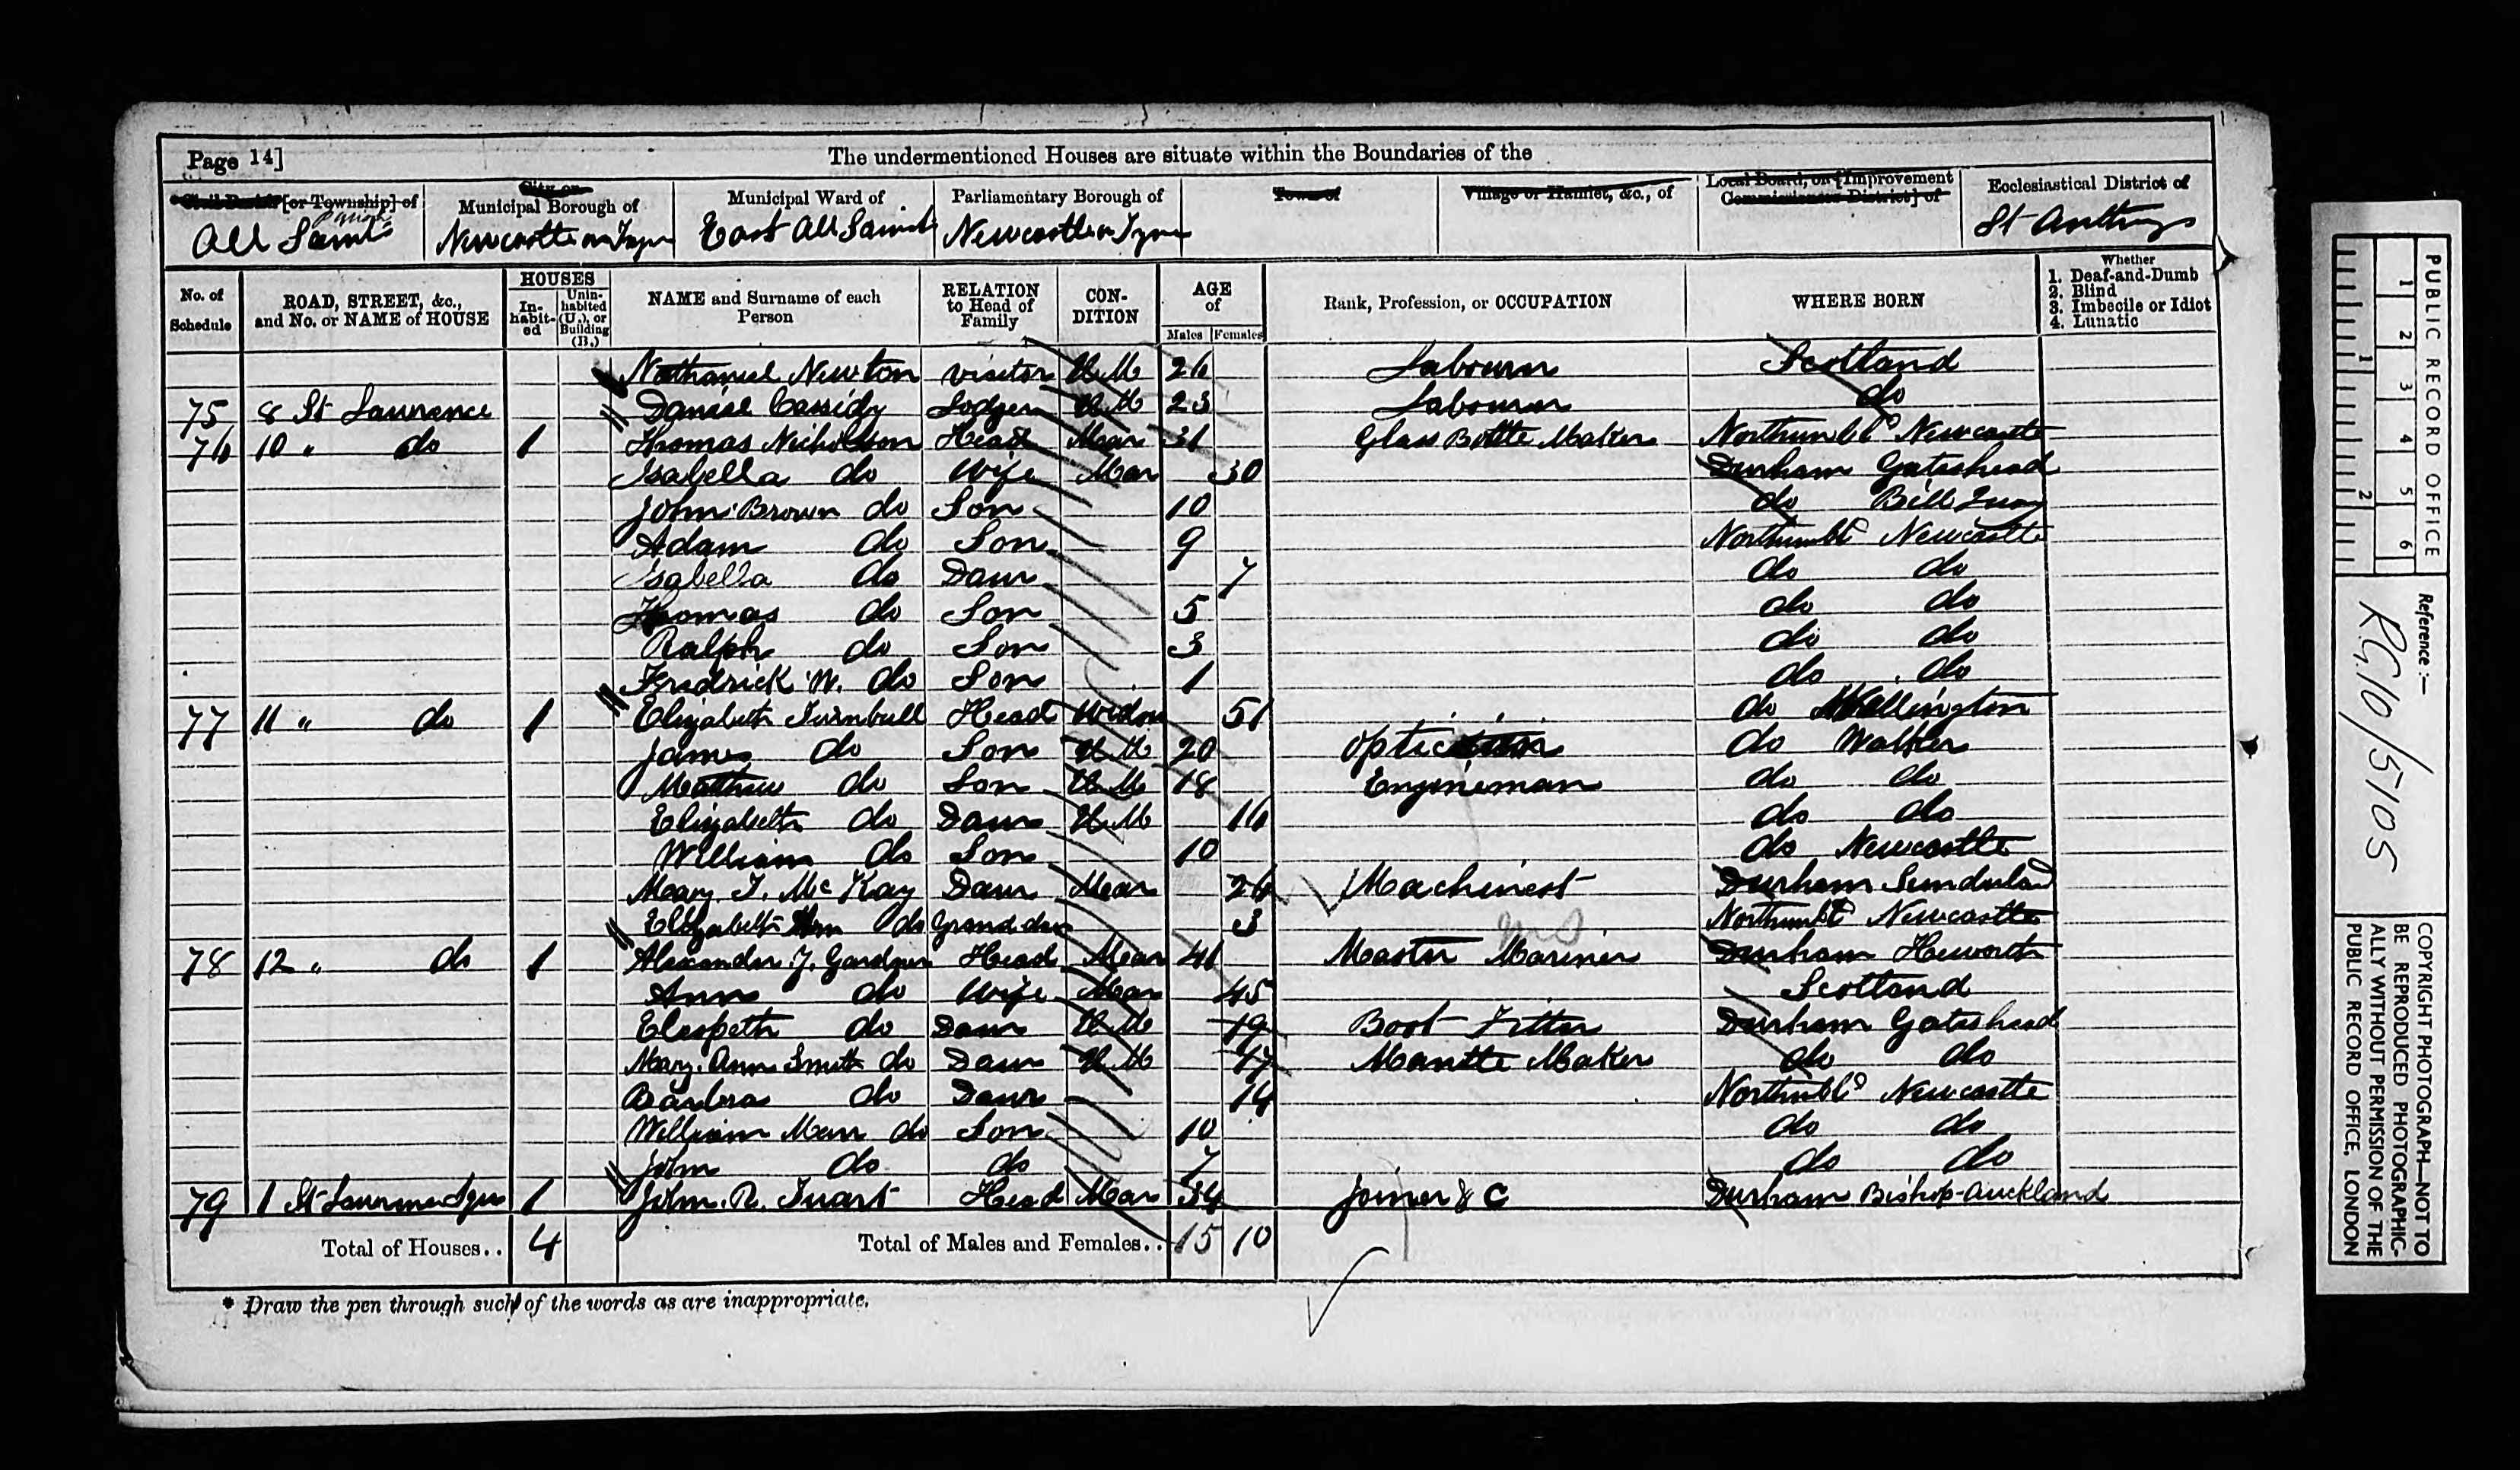 Page 14]
The undermentioned Houses are situate within the Boundaries of the
*Civil Parish [or Township] of
City or Municipal Borough of
Municipal Ward of
Parliamentary Borough of
Town of
Village or Hamlet, &c., of
Local Board, or [Improvement Commissioners District] of
Ecclesiastical District of
All Saints Parish
Newcastle on Tyne
East All Saints
Newcastle on Tyne
St Anthonys
No. of Schedule
ROAD, STREET, &c., and No. or NAME of HOUSE
HOUSES
In-habit-ed
Unin-habited (U.), or Building (B.)
NAME and Surname of each Person
RELATION to Head of Family
CON-DITION
AGE of
Males Females
Rank, Profession, or OCCUPATION
WHERE BORN
Whether
1. Deaf-and-Dumb
2. Blind
3. Imbecile or Idiot
4. Lunatic
Nathaniel Newton visitor U.M 26 Labourer Scotland
75 8 St Lawrence Daniel Cassidy Lodger U.M 23 Labourer do
76 10 " do 1 Thomas Nicholson Head Mar 31 Glass Bottle Maker Northumbld Newcastle
Isabella do Wife Mar 30 Durham Gateshead
John Brown do Son 10 do Bill Quay
Adam do Son 9 Northumbld Newcastle
Isabella do Daur 7 do do
Thomas do Son 5 do do
Ralph do Son 3 do do
Fredrick W. do Son 1 do do
77 11 " do 1 Elizabeth Turnbull Head Widow 51 do Wallington
James do Son U.M 20 Optician do Walker
Matthew do Son U.M 18 Engineman do do
Elizabeth do Daur U.M 16 do do
William do Son 10 do Newcastle
Mary J. Mc Kay Daur Mar 26 Machinest Durham Sunderland
Elizabeth Ann do Grand daur 3 Northumbd Newcastle
78 12 " do 1 Alexander J. Gardner Head Mar 41 Master Mariner Durham Heworth
Ann do Wife Mar 45 Scotland
Elespeth do Daur U.M 19 Boot Fitter Durham Gateshead
Mary Ann Smith do Daur U.M 17 Mantle Maker do do
Barbra do Daur 14 Northumbld Newcastle
William Marr do Son 10 do do
John do do 7 do do
79 1 St Lawrence Sqre 1 John. R. Tuart Head Mar 34 Joiner & C Durham Bishop-Auckland
Total of Houses.. 4
Total of Males and Females.. 15 10
* Draw the pen through such of the words as are inappropriate.
PUBLIC RECORD OFFICE
1 2 3 4 5 6
1 2
Reference:—
RG10/5105
COPYRIGHT PHOTOGRAPH—NOT TO
BE REPRODUCED PHOTOGRAPHIC-
ALLY WITHOUT PERMISSION OF THE
PUBLIC RECORD OFFICE, LONDON